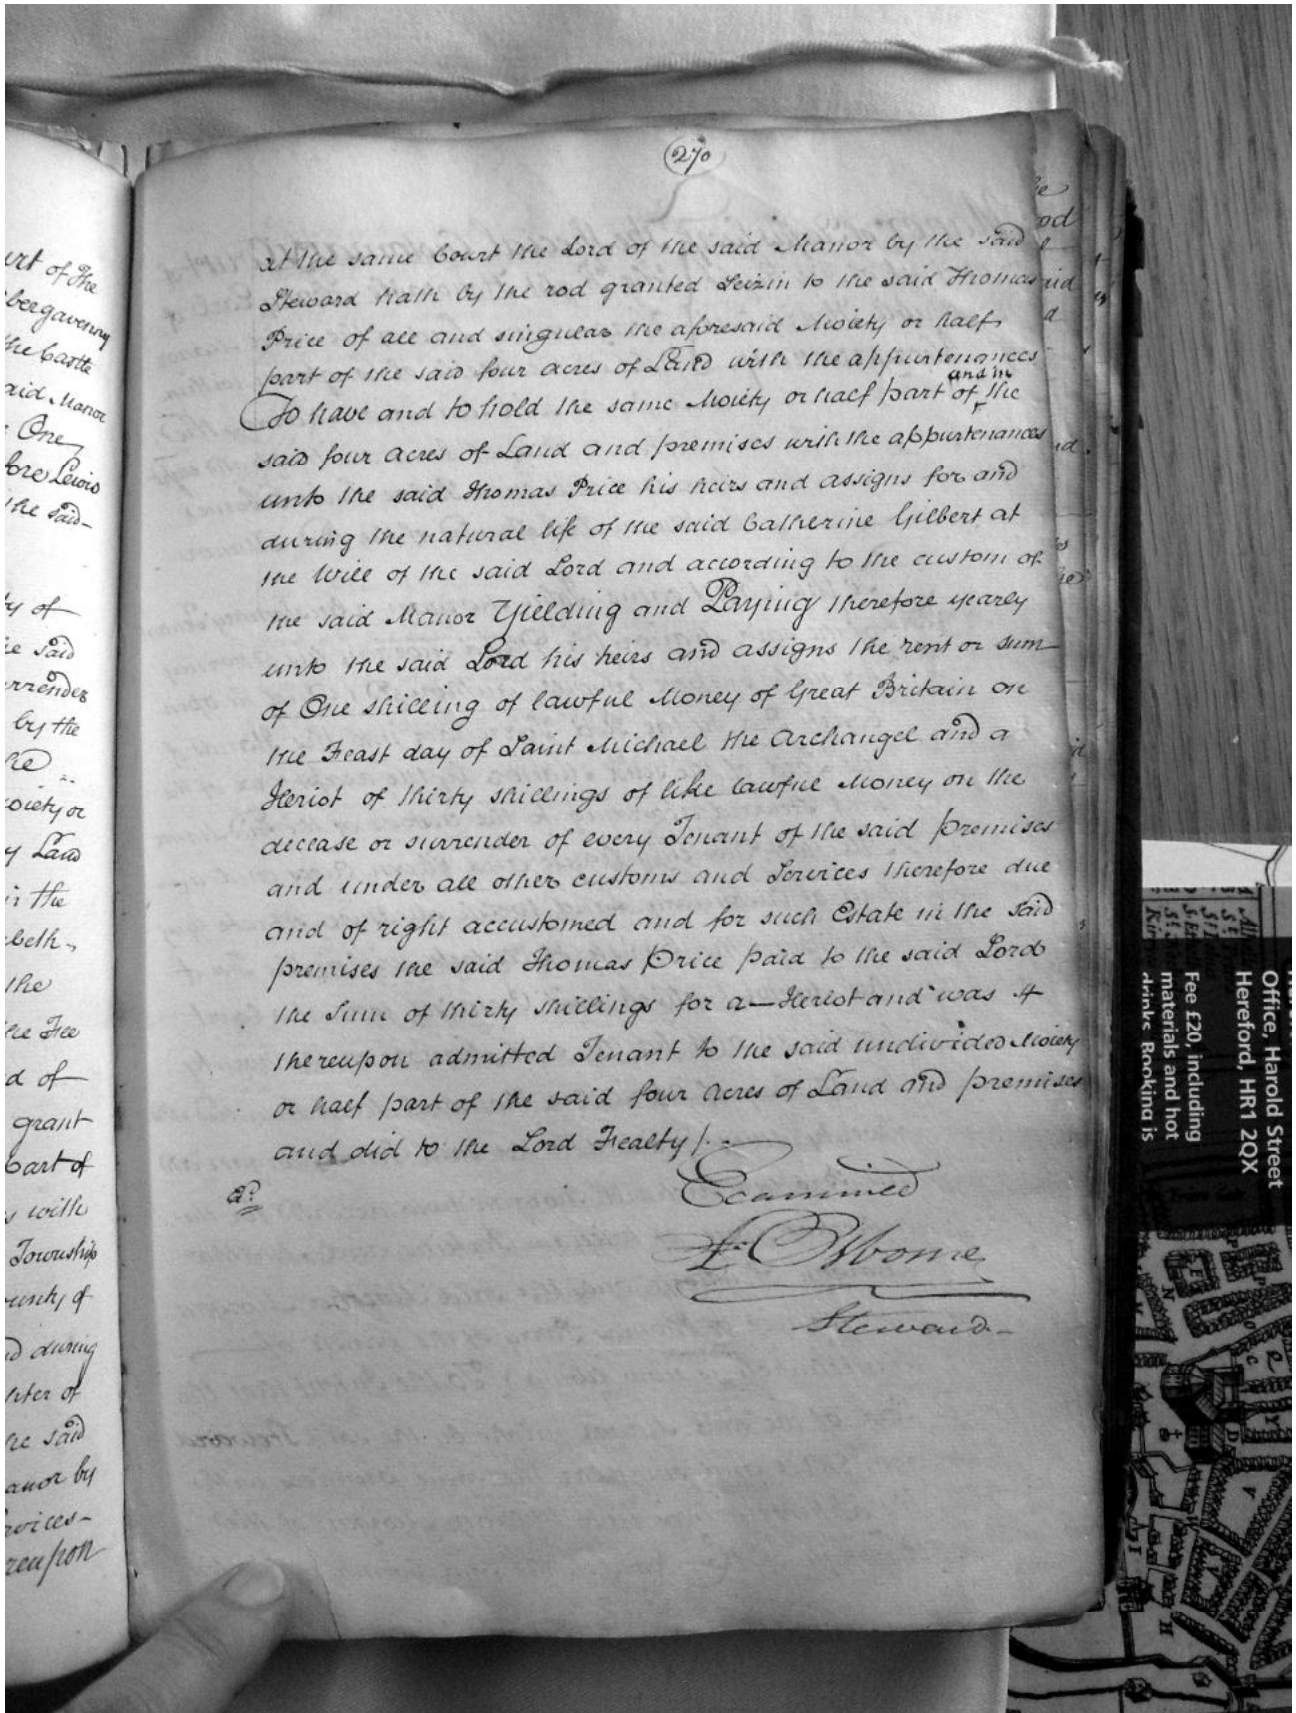 urt of the
bergavenny
the Castle
aid Manor
One
fore Lewis
the said
ty of
he said
urrender
by the
he
oiety or
y Land
in the
beth
the
the Fee
d of
grant
part of
s with
Township
ounty of
d during
hter of
he said
anor by
rvices
reupon
270
at the same Court the Lord of the said Manor by the said
Steward hath by the rod granted Seizin to the said Thomas
Price of all and singular the aforesaid Moiety or half
part of the said four acres of Land with the appurtenances
and in
To have and to hold the same Moiety or half part of the
said four acres of Land and premises with the appurtenances
unto the said Thomas Price his heirs and assigns for and
during the natural life of the said Catherine Gilbert at
the Will of the said Lord and according to the custom of
the said Manor Yielding and Paying therefore yearly
unto the said Lord his heirs and assigns the rent or sum
of One shilling of lawful Money of Great Britain on
the Feast day of Saint Michael the Archangel and a
Heriot of thirty shillings of like lawful Money on the
decease or surrender of every Tenant of the said premises
and under all other customs and Services therefore due
and of right accustomed and for such Estate in the said
premises the said Thomas Price paid to the said Lord
the Sum of thirty shillings for a Heriot and was
thereupon admitted Tenant to the said undivided Moiety
or half part of the said four Acres of Land and premises
and did to the Lord Fealty /.
Examined
Osborne
Steward
Office, Harold Street
Hereford, HR1 2QX
Fee £20, including
materials and hot
drinks. Booking is